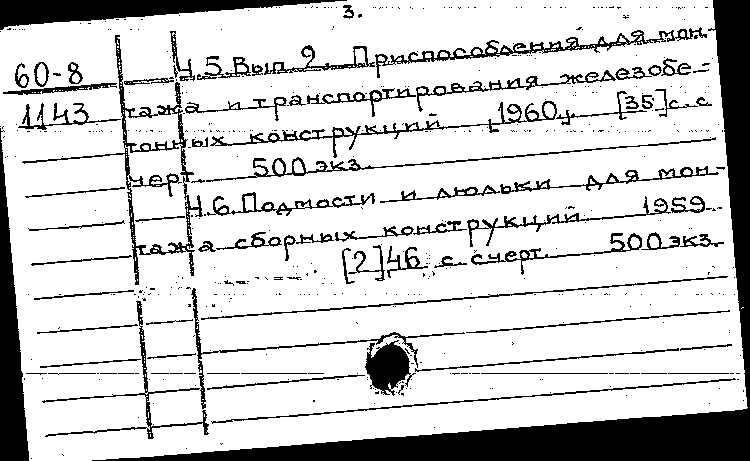 3.
60-8
1143
Ч.5. Вып 2. Приспособления для мон-
тажа и транспортирования железобе-
тонных конструкций [1960]. [35] с. с
черт. 500 экз.
Ч.6. Подмости и люльки для мон-
тажа сборных конструкций 1959
[2] 46 с счерт. 500 экз.